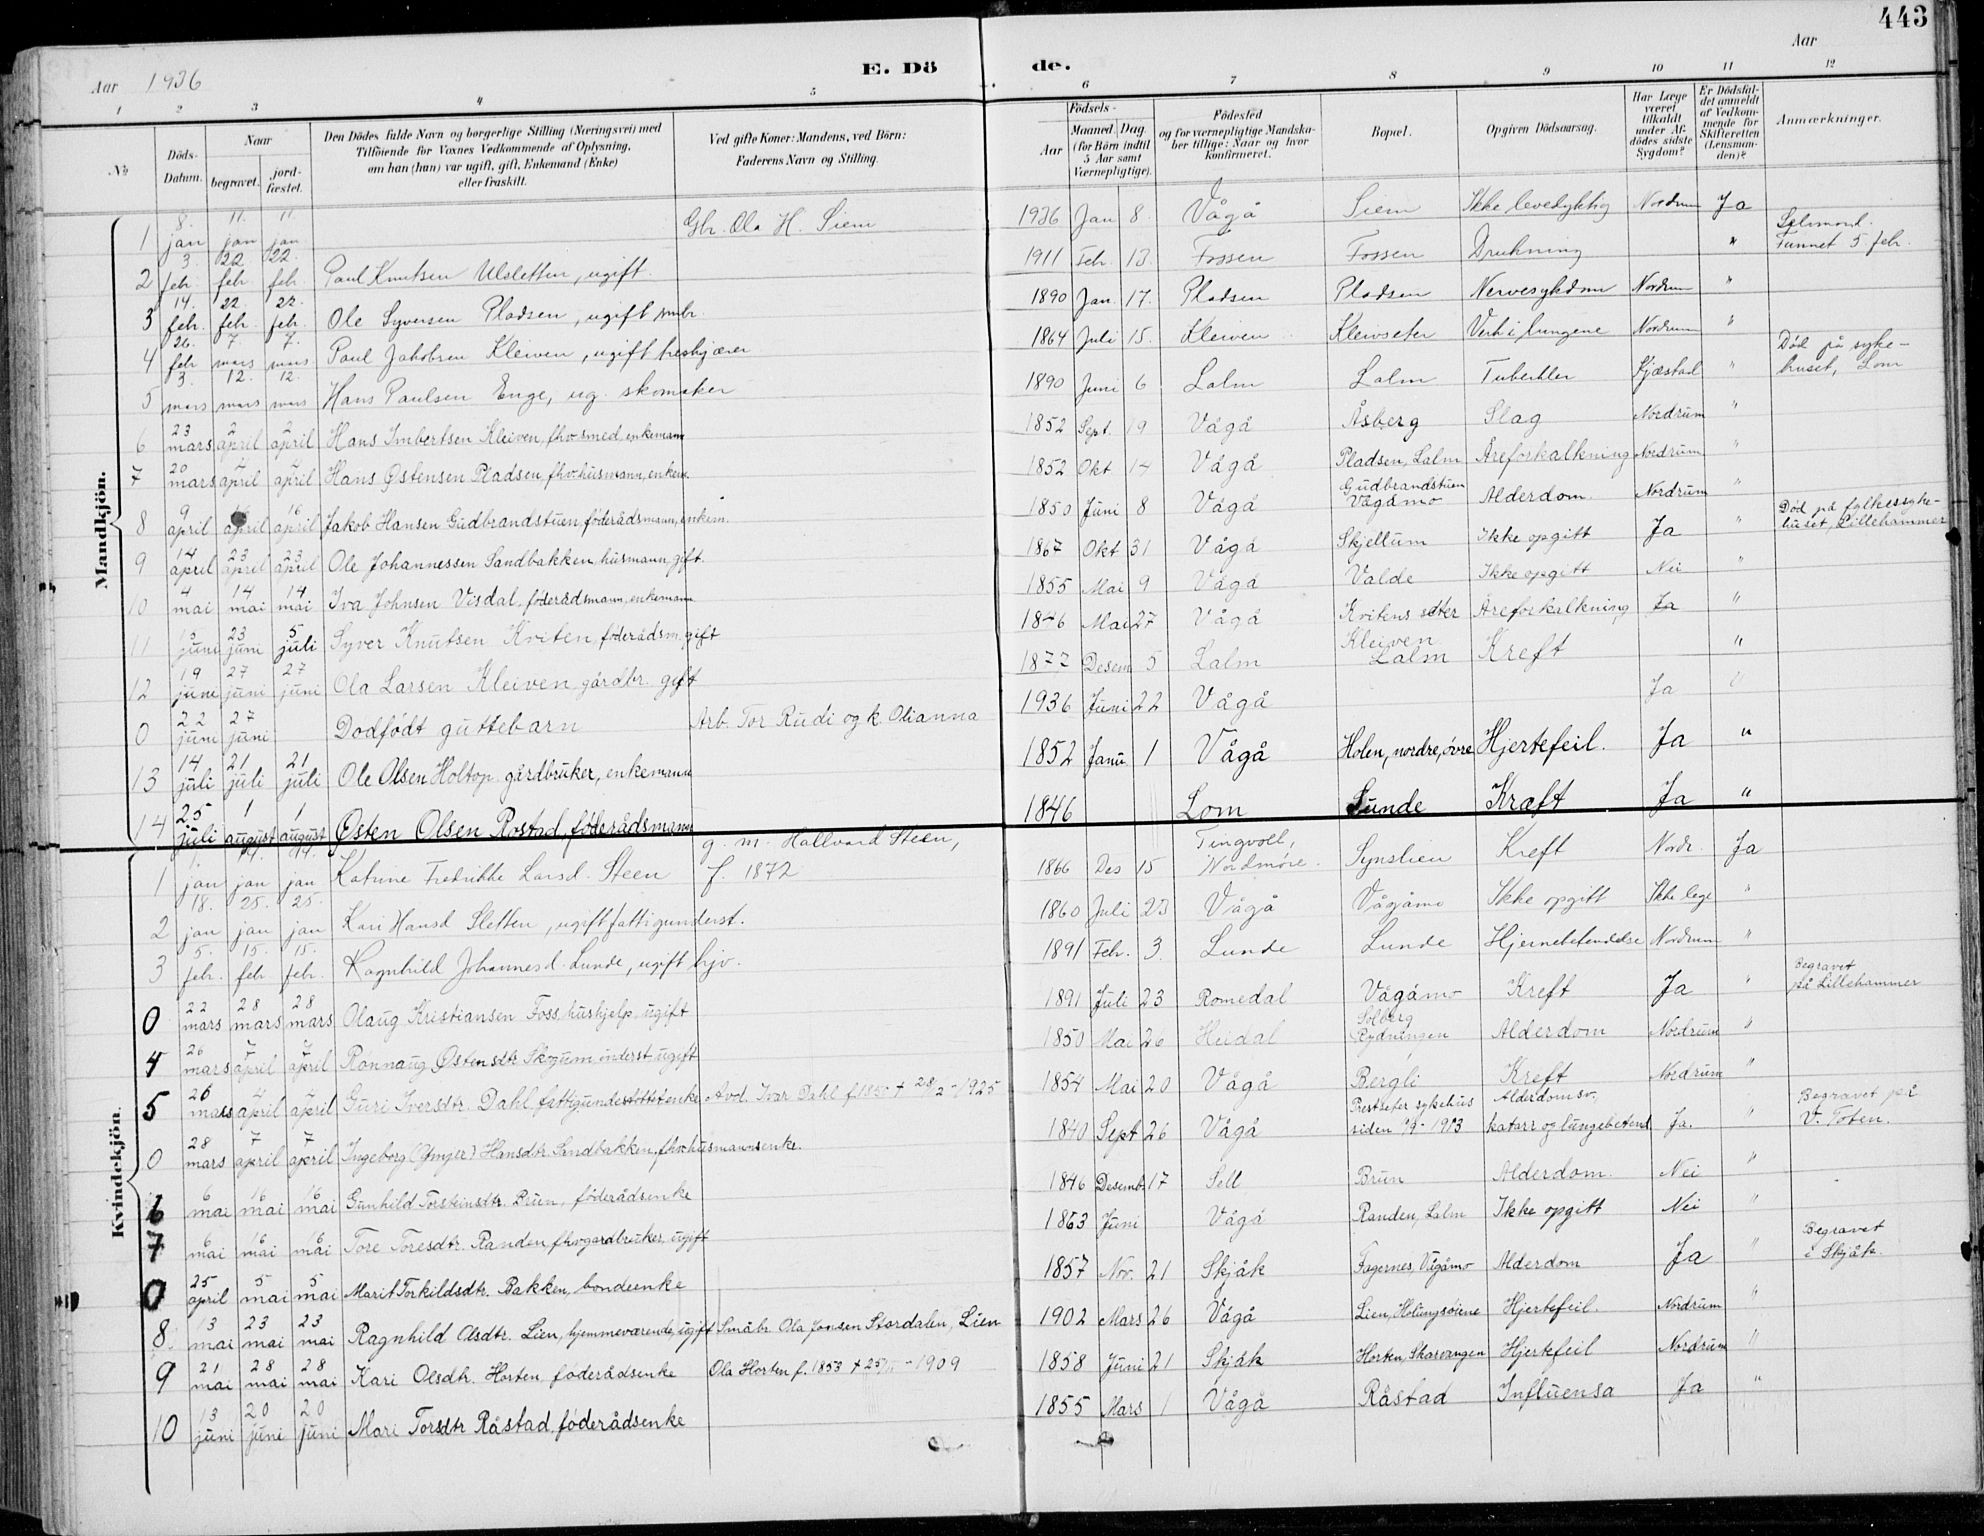 443
Aar 1936
E. Dö de.
Aar
1 2 3 4 5 6 7 8 9 10 11 12
No
Döds-Datum.
Naar
begravet.
jord-fæstet.
Den Dödes fulde Navn og borgerlige Stilling (Næringsvei) med
Tilföiende for Voxnes Vedkommende af Oplysning,
om han (hun) var ugift, gift, Enkemand (Enke)
eller fraskilt.
Ved gifte Koner: Mandens, ved Börn:
Faderens Navn og Stilling.
Födsels-
Aar
Maaned. Dag.
(for Börn indtil
5 Aar samt
Værnepligtige).
Födested
og for værnepligtige Mandska-
ber tillige: Naar og hvor
konfirmeret.
Bopæl.
Opgiven Dödsaarsag.
Har Læge
været
tilkaldt
under Af-
dödes sidste
Sygdom?
Er Dödsfal-
det anmeldt
af Vedkom-
mende for
Skifteretten
(Lensman-
den)?
Anmærkninger.
Mandkjön.
1 8. jan 11. jan 11. jan Gbr. Ola H. Siem 1936 Jan 8. Vågå Siem Ikke levedyktig Nordrum Ja
2 3. feb. 22. feb. 22. feb. Paul Knutsen Ulsletten, ugift. 1911 Feb. 13. Fossen Fossen Drukning " Selvmord. Funnet 5 feb.
3 14. feb. 22. feb. 22. feb. Ole Syversen Pladsen, ugift smbr. 1890 Jan. 17. Pladsen Pladsen Nervesykdom Nordrum "
4 26. feb 7. mars 7. mars Paul Jakobsen Kleiven, ugift treskjærer 1864 Juli 15. Kleiven Kleivseter Verk i lungene Nordrum "
5 3. mars 12. mars 12. mars Hans Paulsen Enge, ug. skomaker 1890 Juni 6 Lalm Lalm Tuberkler Kjæstad " Död på syke-huset, Lom
6 23 mars 2 april 2 april Hans Imbertsen Kleiven, fhv. smed, enkemann 1852 Sept. 19 Vågå Åsberg Slag Nordrum "
7 20 mars april april Hans Østensen Pladsen, fhv. husmann, enkem. 1852 Okt 14 Vågå Pladsen, Lalm Åreforkalkning Nordrum "
8 9 april april 16 april Jakob Hansen Gudbrandstuen, föderådsmann, enkem. 1850 Juni 8 Vågå Gudbrandstuen Vågåmo Alderdom Nordrum "
9 14 april 23 april 23 april Ole Johannessen Sandbakken, husmann, gift. 1867 Okt 31 Vågå Skjellum Ikke opgitt Ja " Död på fylkessyke-huset, Lillehammer
10 4 mai 14 mai 14 mai Iva Johnsen Visdal, föderådsmann, enkemann 1855 Mai 9 Vågå Valde Ikke opgitt Nei "
11 juni 23 juni 5 juli Syver Knutsen Kviten, föderådsm. gift 1846 Mai 27 Vågå Kvitens seter Åreforkalkning Ja "
12 19 juni 27 juni 27 juni Ola Larsen Kleiven, gårdbr. gift 1877 Desem 5 Lalm Kleiven Lalm Kreft "
0 22 juni 27 juni Dodfödt guttebarn Arb. Tor Rudi og k. Olianna 1936 Juni 22 Vågå Ja "
13 14 juli 21 juli 21 juli Ole Olsen Holtop gårdbruker, enkemann 1852 Janu 1 Vågå Holen, nordre, övre Hjertefeil. Ja "
14 25 juli 1 august 1 august Østen Olsen Rostad, föderådsmann 1846 Lom Sunde Kræft Ja "
Kvindekjön.
1 jan jan jan Katrine Fredrikke Larsd. Steen g. m. Hallvard Steen, f. 1872 1866 Des 15 Tingvoll, Nordmöre. Synslien Kreft Nordr. Ja
2 18. jan 25. jan 25. jan Kari Hansd Sletten, ugift fattigunderst. 1860 Juli 23 Vågå Vågåmo Ikke opgitt Ikke lege "
3 5. feb. 15. feb 15. feb. Ragnhild Johannesd. Lunde, ugift hjv. 1891 Feb. 3. Lunde Lunde Hjernebetendelse Nordrum "
0 22 mars 28 mars 28 mars Olaug Kristiansen Foss, hushjelp, ugift 1891 Juli 23 Romedal Vågåmo Kreft Ja " Begravet på Lillehammer
4 26 mars 7 april 7 april Ronnaug Østensdtr. Skogum, inderst ugift 1850 Mai 26 Heidal Solberg Rydningen Alderdom Nordrum "
5 26 mars 4 april 4 april Guri Iversdtr. Dahl fattigunderstöttet enke Avd. Ivar Dahl f. 1850 + 28/2 - 1925 1854 Mai 20 Vågå Bergli Kreft Nordrum "
0 28 mars 7 april 7 april Ingeborg (Ymjer) Hansdtr. Sandbakken, fhv. husmannsenke. 1840 Sept 26 Vågå Prestseter sykehus siden - 1913 Alderdomsv. katarr og lungebetend Ja. " Begravet på V. Toten.
6 6 mai 16 mai 16 mai Gunhild Torsteinsdtr. Brun, föderådsenke 1846 Desemb. 17 Sell Brun Alderdom. Nei "
7 6 mai 16 mai 16 mai Tore Toresdtr. Randen, fhv gardbruker, ugift 1863 Juni Vågå Randen, Lalm Ikke opgitt Nei "
0 25 april 5 mai 5 mai Marit Torkildsdtr. Bakken, bondeenke 1857 Nov. 21 Skjåk Fagernes, Vågåmo Alderdom Ja " Begravet i Skjåk.
8. 13 mai 23 mai 23 mai Ragnhild Olsdtr. Lien, hjemmeværende, ugift Småbr. Ola Jonsen Stordalen, Lien 1902 Mars 26 Vågå Lien, Holungsöiene Hjertefeil. Nordrum "
9 21 mai 28 mai 28 mai Kari Olsdtr. Horten, föderådsenke Ola Horten f. 1853 + - 1909 1858 Juni 21 Skjåk Horten, Skarvangen Hjertefeil Nordrum "
10 13 juni 20 juni 20 juni Mari Torsdtr Råstad, föderådsenke 1855 Mars 1 Vågå Råstad Influensa Ja "